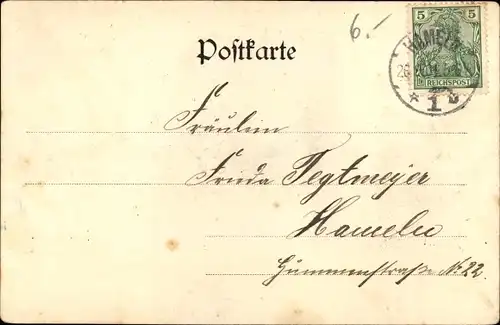 6.-
5 5
REICHSPOST
HAMELN
1
Postkarte
Fräulein
Frieda Tegtmeyer
Hameln
Hummenstraße No. 22